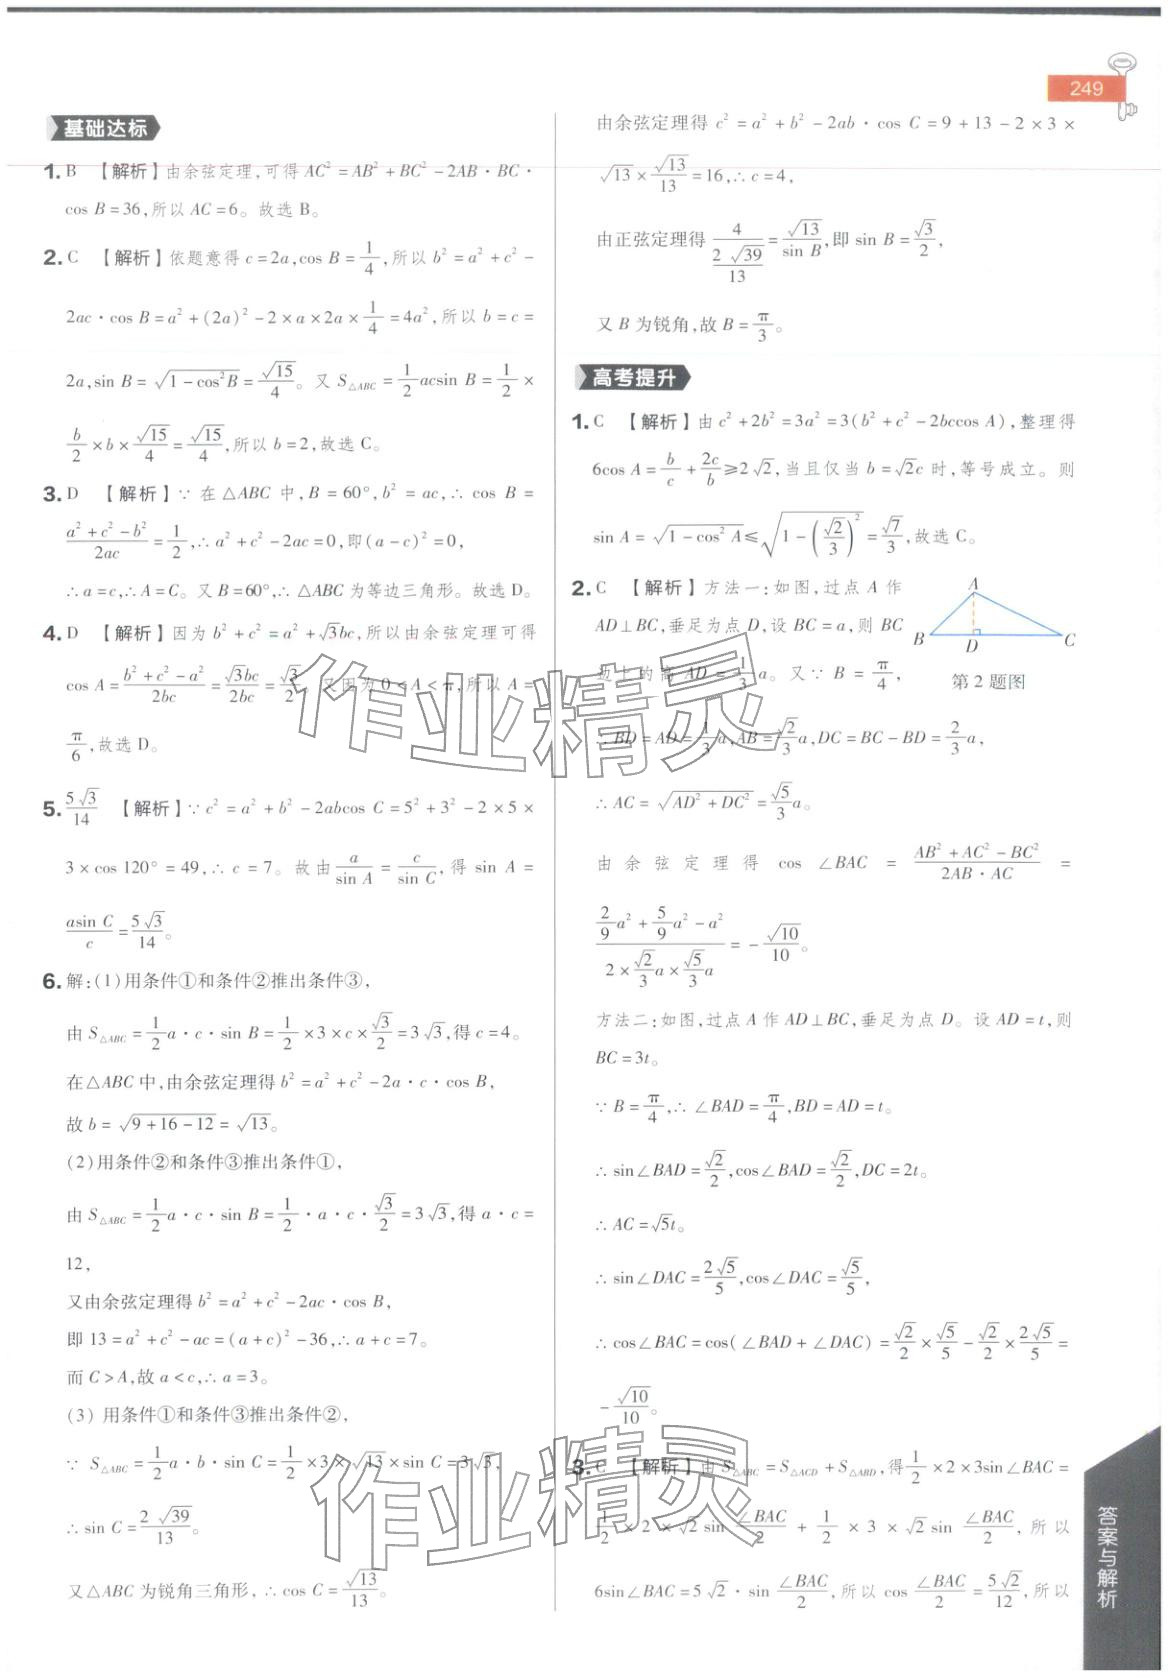 249
基础达标
1. B 【解析】由余弦定理,可得 AC²=AB²+BC²-2AB·BC·
cos B=36,所以 AC=6。故选 B。
2. C 【解析】依题意得 c=2a,cos B=1/4,所以 b²=a²+c²-
2ac·cos B=a²+(2a)²-2×a×2a×1/4=4a²,所以 b=c=
2a,sin B=√(1-cos²B)=√15/4。又 S△ABC=1/2acsin B=1/2×
b/2×b×√15/4=√15/4,所以 b=2,故选 C。
3. D 【解析】∵在△ABC 中,B=60°,b²=ac,∴cos B=
(a²+c²-b²)/2ac=1/2,∴a²+c²-2ac=0,即(a-c)²=0,
∴a=c,∴A=C。又 B=60°,∴△ABC 为等边三角形。故选 D。
4. D 【解析】因为 b²+c²=a²+√3bc,所以由余弦定理可得
cos A=(b²+c²-a²)/2bc=√3bc/2bc=√3/2。又因为 0<A<π,所以 A=
π/6,故选 D。
5. 5√3/14 【解析】∵c²=a²+b²-2abcos C=5²+3²-2×5×
3×cos 120°=49,∴c=7。故由a/sin A=c/sin C,得 sin A=
asin C/c=5√3/14。
6. 解:(1)用条件①和条件②推出条件③,
由 S△ABC=1/2a·c·sin B=1/2×3×c×√3/2=3√3,得 c=4。
在△ABC 中,由余弦定理得 b²=a²+c²-2a·c·cos B,
故 b=√(9+16-12)=√13。
(2)用条件②和条件③推出条件①,
由 S△ABC=1/2a·c·sin B=1/2·a·c·√3/2=3√3,得 a·c=
12,
又由余弦定理得 b²=a²+c²-2ac·cos B,
即 13=a²+c²-ac=(a+c)²-36,∴a+c=7。
而 C>A,故 a<c,∴a=3。
(3) 用条件①和条件③推出条件②,
∵ S△ABC=1/2a·b·sin C=1/2×3×√13×sin C=3√3,
∴sin C=2√39/13。
又△ABC 为锐角三角形,∴cos C=√13/13。
由余弦定理得 c²=a²+b²-2ab·cos C=9+13-2×3×
√13×√13/13=16,∴c=4,
由正弦定理得 4/(2√39/13)=√13/sin B,即 sin B=√3/2,
又 B 为锐角,故 B=π/3。
高考提升
1. C 【解析】由 c²+2b²=3a²=3(b²+c²-2bccos A),整理得
6cos A=b/c+2c/b≥2√2,当且仅当 b=√2c 时,等号成立。则
sin A=√(1-cos²A)≤√(1-(√2/3)²)=√7/3,故选 C。
2. C 【解析】方法一:如图,过点 A 作
AD⊥BC,垂足为点 D,设 BC=a,则 BC
边上的高 AD=1/3a。又∵B=π/4,
A
B
D
C
第 2 题图
∴BD=AD=1/3a,AB=√2/3a,DC=BC-BD=2/3a,
∴AC=√(AD²+DC²)=√5/3a。
由余弦定理得 cos∠BAC=(AB²+AC²-BC²)/(2AB·AC)=
(2/9a²+5/9a²-a²)/(2×√2/3a×√5/3a)=-√10/10。
方法二:如图,过点 A 作 AD⊥BC,垂足为点 D。设 AD=t,则
BC=3t。
∵B=π/4,∴∠BAD=π/4,BD=AD=t。
∴sin∠BAD=√2/2,cos∠BAD=√2/2,DC=2t。
∴AC=√5t。
∴sin∠DAC=2√5/5,cos∠DAC=√5/5,
∴cos∠BAC=cos(∠BAD+∠DAC)=√2/2×√5/5-√2/2×2√5/5=
-√10/10。
3. C 【解析】由 S△ABC=S△ACD+S△ABD,得1/2×2×3sin∠BAC=
1/2×2×√2sin ∠BAC/2+1/2×3×√2sin ∠BAC/2,所以
6sin∠BAC=5√2·sin ∠BAC/2,所以 cos ∠BAC/2=5√2/12,所以
答案与解析
作业精灵
作业精灵